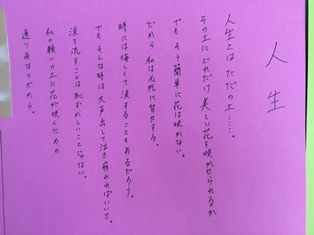 人生
人生とは ただの土……。
その土に どれだけ 美しい花を咲かせられるか
でも そう簡単に花は咲かない。
だから 私は必死に努力する。
時には悔しくて涙することもあるだろう。
でも そんな時は 大声出して泣き崩れればいいさ。
涙を流すことは恥ずかしいことじゃない。
私の願いの土に花が咲くための
通り雨なのだから。